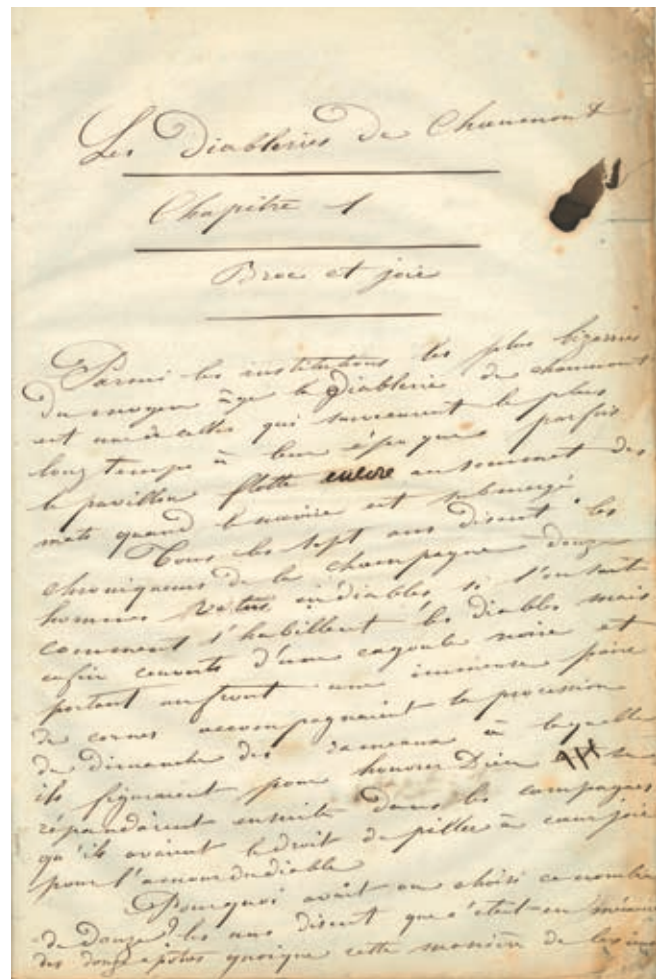 Les Diableries de Chaumont
Chapitre 1
Broc et joie
Parmi les institutions les plus bizarres
du moyen âge la Diablerie de chaumont
est une de celles qui survécurent le plus
long temps à leur époque parfois
le pavillon flotte encore au sommet des
mats quand le navire est submergé
Tous les sept ans disent les
chroniqueurs de la champagne douze
hommes vetus en diables si l'on sait
comment s'habillent les diables mais
enfin couverts d'une cagoule noire et
portant au front une immense paire
de cornes accompagnaient la procession
du dimanche des rameaux à laquelle
ils figuraient pour honorer Dieu et se
répandaient ensuite dans les campagnes
qu'ils avaient le droit de piller à cœur joie
pour l'amour du diable
Pourquoi avait on choisi ce nombre
de Douze? les uns disent que c'était en mémoire
des douze apôtres quoique cette manière de les